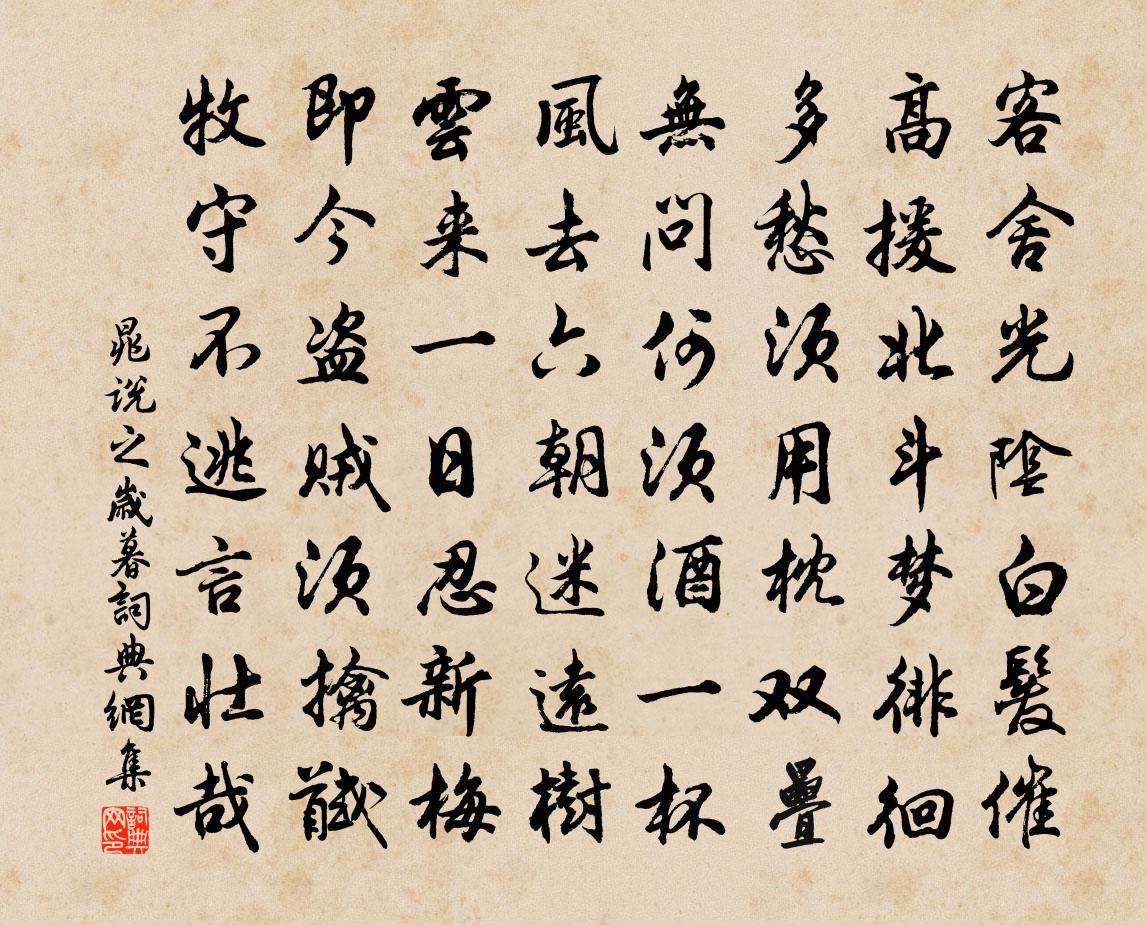 客舍光陰白髮催
高援北斗梦徘徊
多愁須用枕双疊
無問何須酒一杯
風去六朝迷遠樹
雲来一日忍新梅
即今盗賊須擒馘
牧守不逃言壯哉
晁說之歲暮詞典網集
詞典
网印